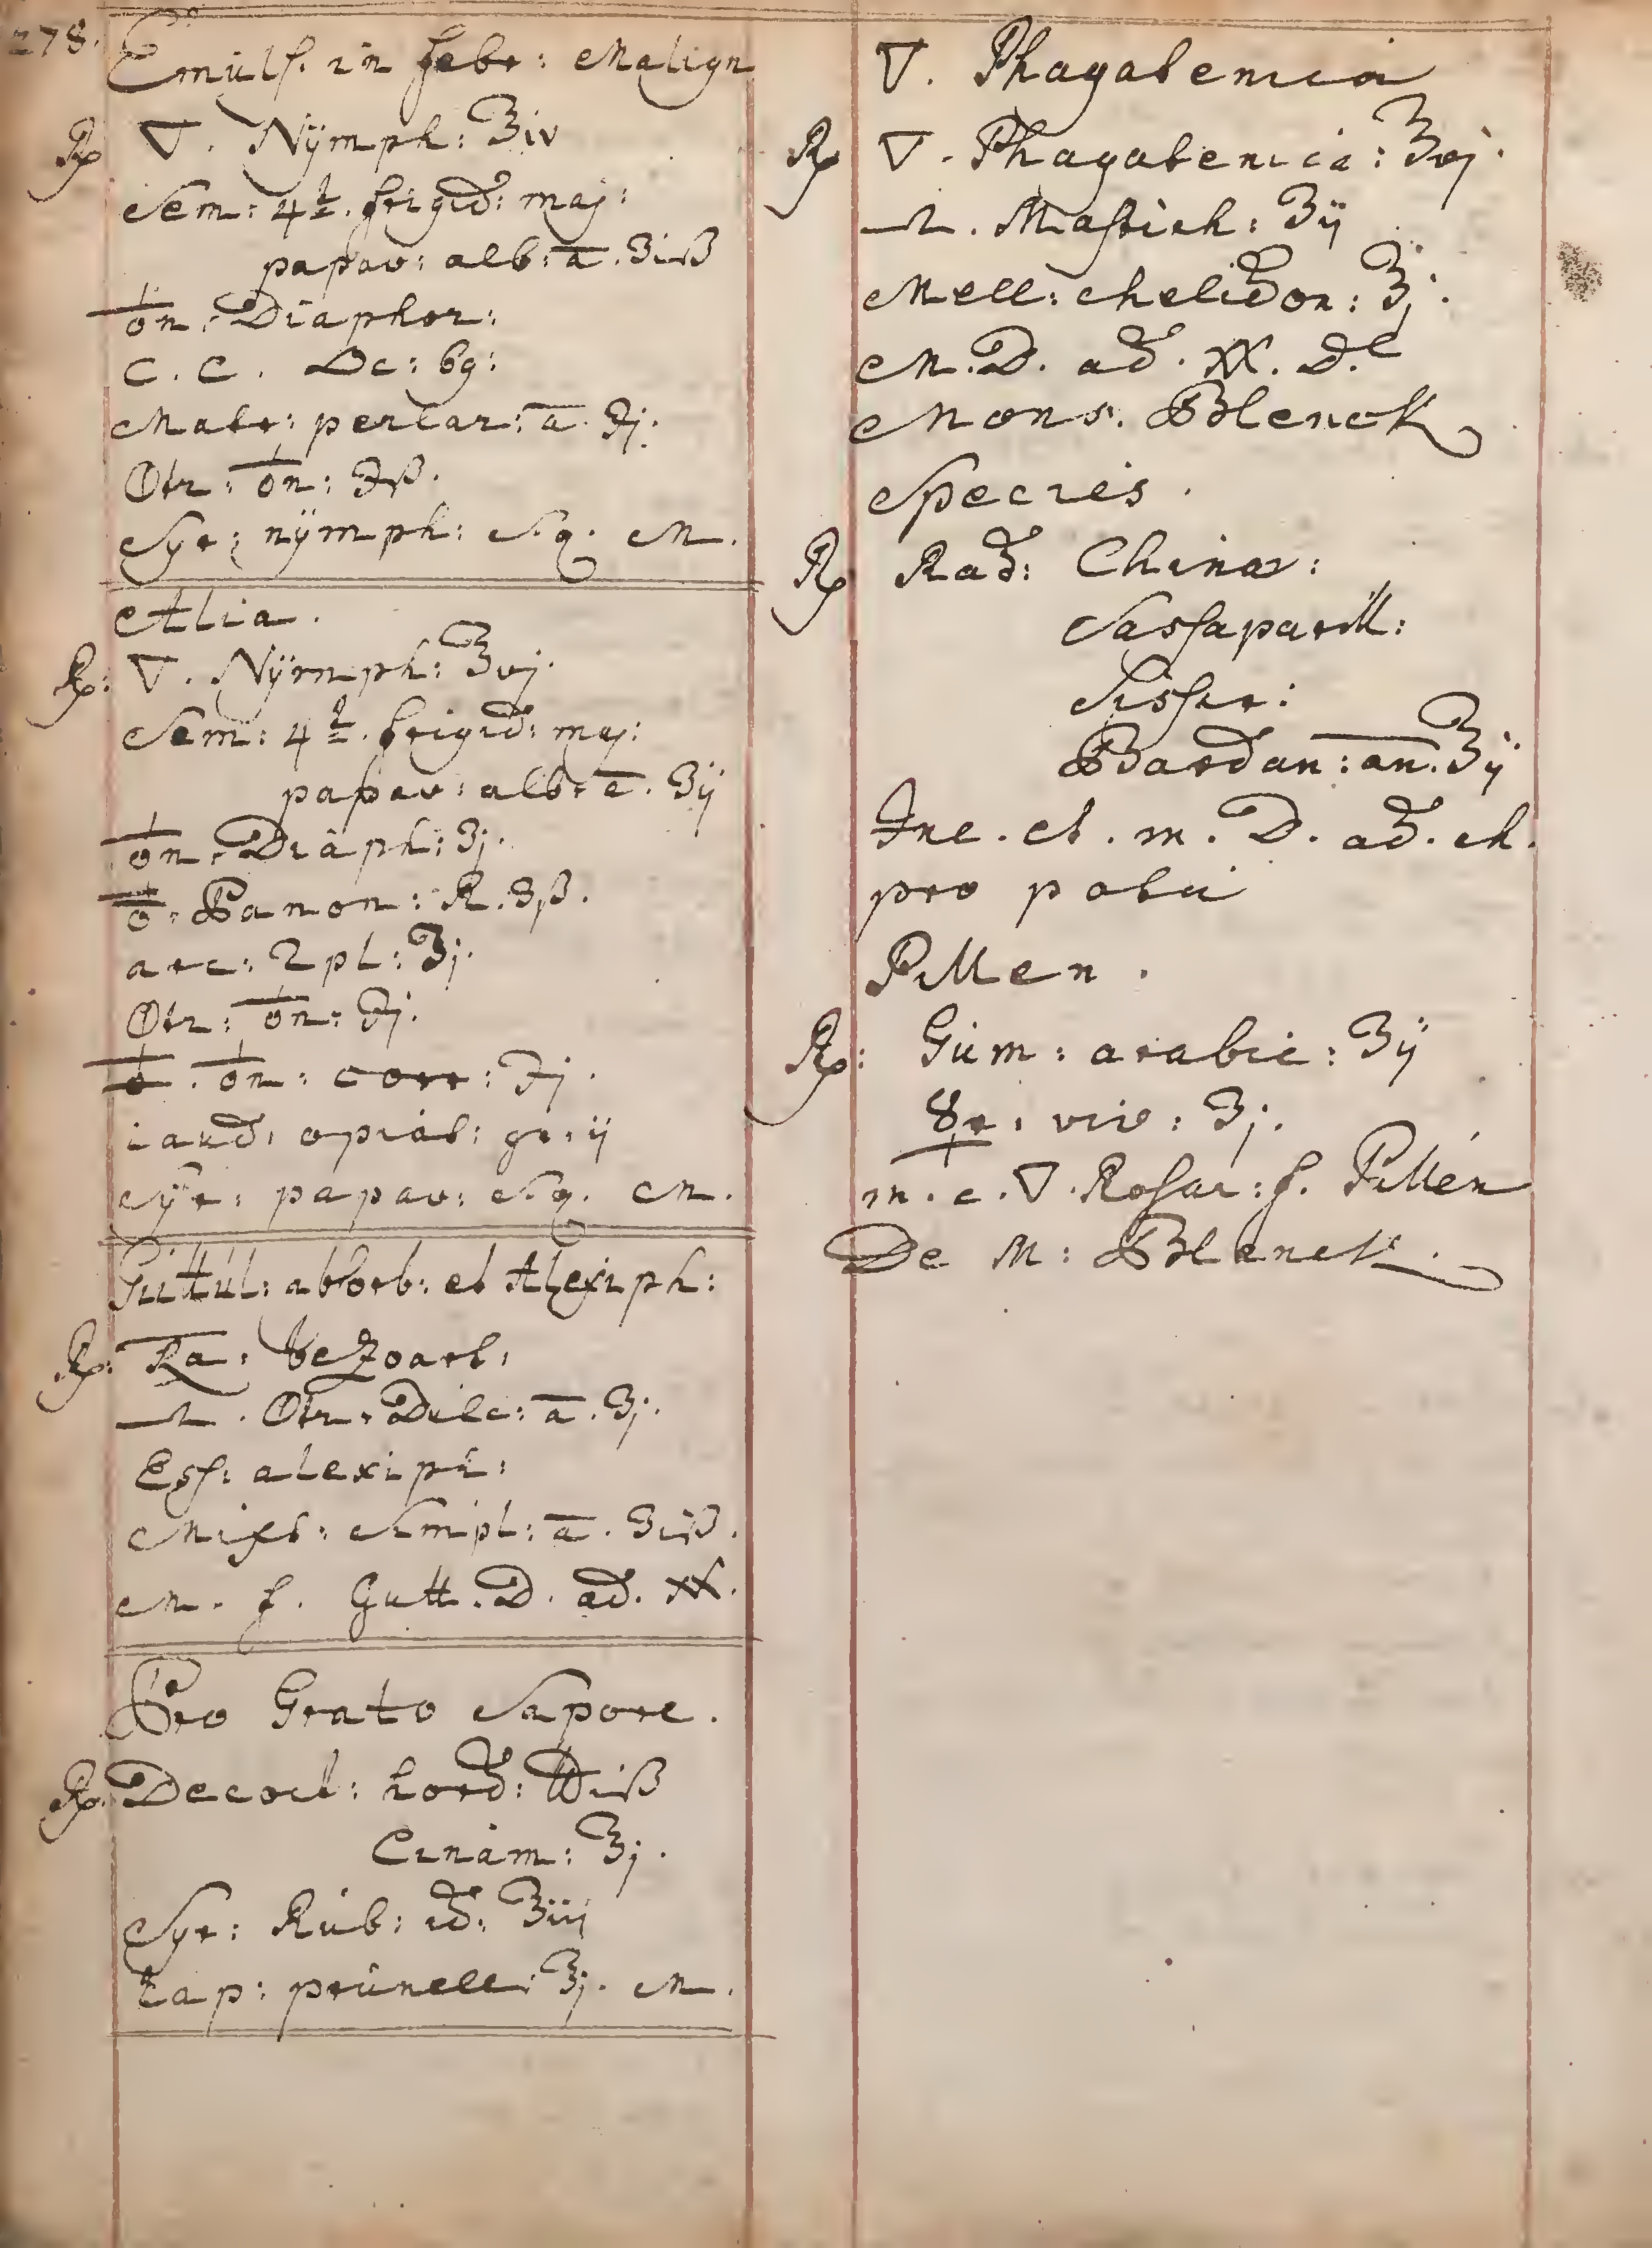 278.
Emulf. in febr: Malign
℞ ▽. Nÿmph: ℥iv
Sem: 4r. frigid: maj:
papav: alb: a̅. ʒiß
♁n. Diaphor:
C. C.
Matr: perlar: a̅. ℈j.
♁n: ℈ß.
Syr: nÿmph: S. q. M.
Alia.
℞: ▽. Nÿmph: ℥vj.
Sem: 4r. frigid: maj:
papav: alb: a̅. ʒij
♁n. Diaph: ʒj.
Panon: R. ʒß.
arc: 2pl: ʒj.
♁n: ℈j.
♁n: corr: ℈j.
laud: opiat: gr. ij
Syr: papav: S. q. M.
Guttul: absorb: et Alexiph:
℞: Ra: bezoart:
Dulc: a̅. ʒj.
Ess: alexiph:
Mixt: Simpl: a̅. ʒiß.
M. f. Gutt. D. ad. XX.
Pro Grato Sapore.
℞. Decoct: hord: ℔iß
Cinam: ℥j.
Syr: Rub: id: ℥iij
Lap: prunell: ʒj. M.
▽. Phagatenica
℞ ▽. Phagatenica: ℥vj.
Mastich: ʒij
Mell: chelidon: ℥j.
M. D. ad. XX. De
Mons: Blenck
Species.
℞ Rad: Chinae:
Sassaparill:
Bardan: an. ℥ij
Inc. et. m. D. ad. ch.
pro potu
Pillen.
℞: Gum: arabic: ʒij
☿r. viv: ʒj.
m. c. ▽. Rosar: f. Pillen
De M: Blenck.